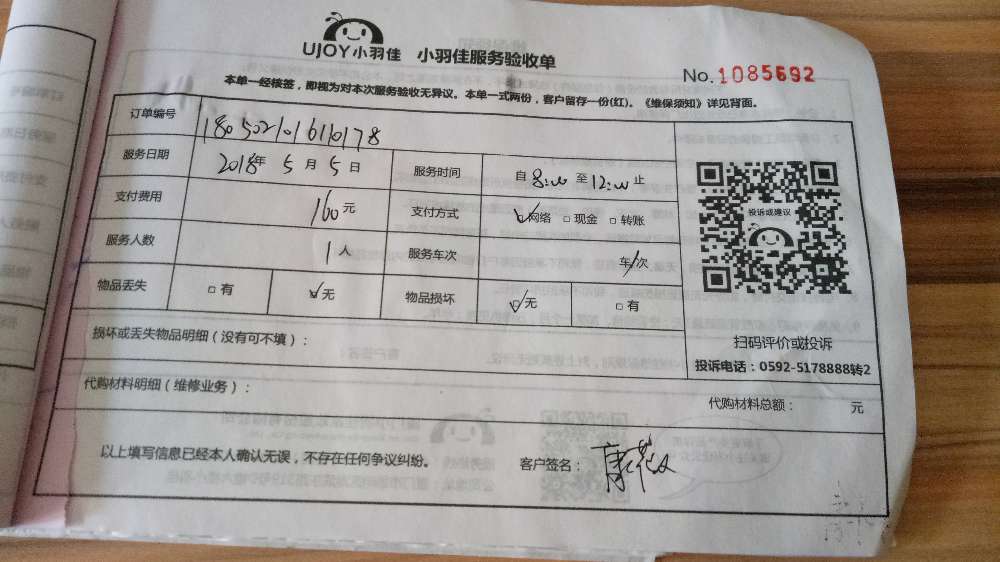 UJOY小羽佳 小羽佳服务验收单
No.1085692
本单一经核签，即视为对本次服务验收无异议。本单一式两份，客户留存一份(红)。《维保须知》详见背面。
订单编号 180502101610178
服务日期 2018年 5月 5日 服务时间 自 8:00 至 12:00 止
支付费用 160元 支付方式 ☑网络 □现金 □转账
服务人数 1人 服务车次 车/次
物品丢失 □有 ☑无 物品损坏 ☑无 □有
投诉或建议
损坏或丢失物品明细（没有可不填）：
扫码评价或投诉
投诉电话：0592-5178888转2
代购材料明细（维修业务）：
代购材料总额： 元
以上填写信息已经本人确认无误，不存在任何争议纠纷。 客户签名：